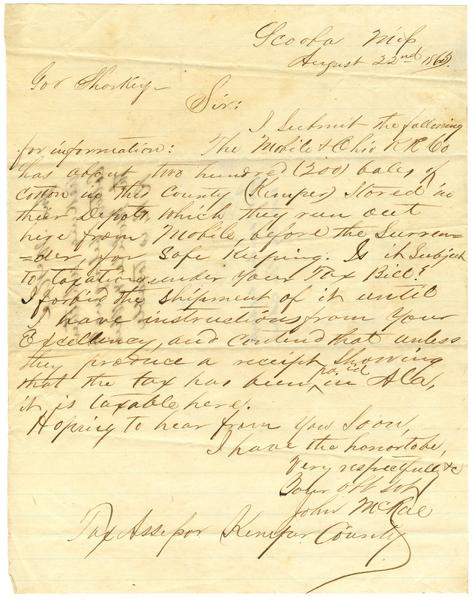 Scooba Miss
August 22nd 1865.
Gov Sharkey-
Sir:
I submit the following
for information: The Mobile & Ohio R R Co
has about two hundred (200) bales of
cotton in the County (Kemper) stored in
their Depots, which they run out
here from Mobile, before the Surren-
=der, for Safe Keeping. Is it Subject
to taxation under Your Tax Bill?
I forbid the Shipment of it until
I have instructions from Your
Excellency, and contend that unless
they produce a receipt, showing
that the tax has been paid in Ala,
it is taxable here.
Hoping to hear from You Soon,
I have the honor to be,
Very respectfully &c
Your obt svt
John McRae
Tax Assessor Kemper County